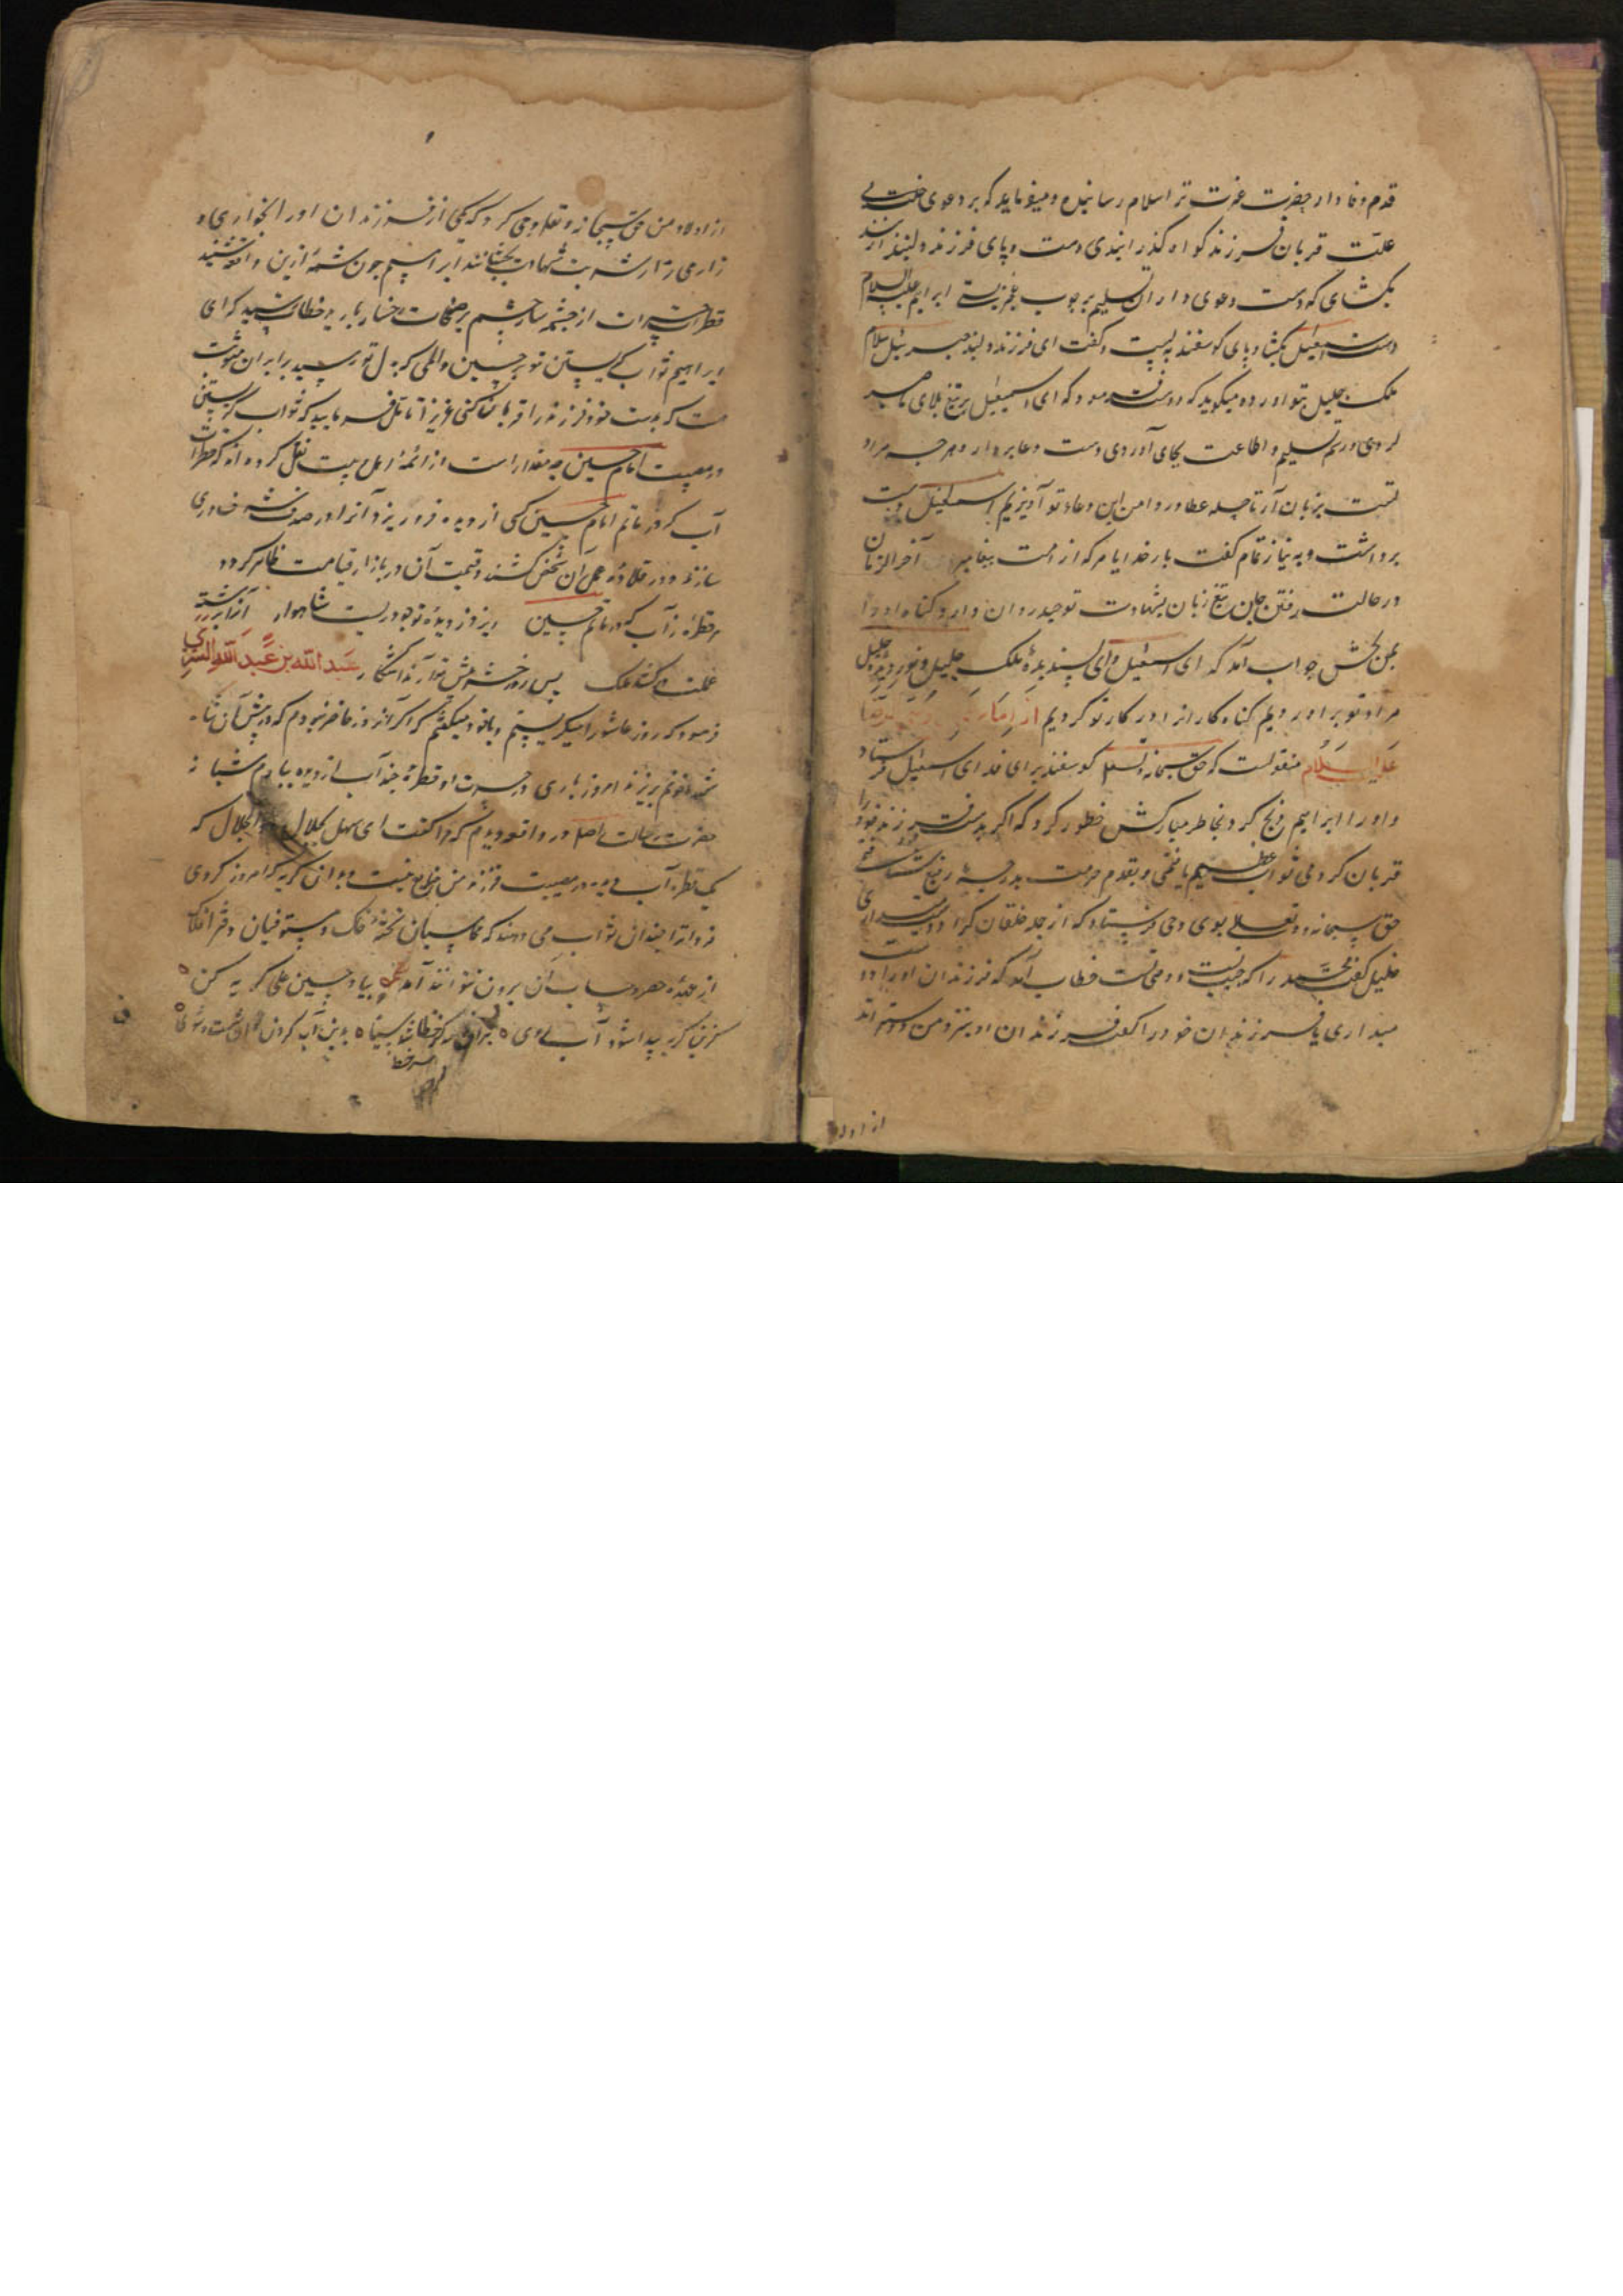 قدم وفادار حضرت عزت ترا سلام رسانیده و میفرماید که بر دعوی خلت بی
علت قربان فرزند گواه گذرانیدی دست و پای فرزند دلبند
بگشای که دست دعوی داران تسلیم بچوب عجز بستی ابراهیم علیه السلام
دست اسمعیل بگشاد پای گوسفند به بست و گفت ای فرزند دلبند جبرئیل سلام
ملک جلیل بتو آورده میگوید که دوست فرمود که ای اسمعیل بر تیغ بلای ما صبر
کردی در تسلیم و اطاعت بجای آوردی دست دعا بردار و هر چه مراد
تست بر زبان آر تا چله عطا در دامن این دعاء تو آویزیم اسمعیل دست
برداشت و به نیاز تمام گفت بار خدایا هر که از امت پیغامبر آخر الزمان
در حالت رفتن جان تیغ زبان بشهادت توحید روان دارد گناه او را
بمن بخش جواب آمد که ای اسمعیل وای پسندیده ملک جلیل و نور دیده خلیل
مراد تو برآوردیم گناه کاران را در کار تو کردیم از
علیه السلام منقولست که حق سبحانه و تعالی گوسفند برای فدای اسمعیل فرستاد
و او را ابراهیم ذبح کرد بخاطر مبارکش خطور کرد که اگر بدست فرزند خود را
قربان کردمی ثواب عظیم یافتمی و بقدم حرمت بدرجه رفیع
حق سبحانه و تعالی بوی وحی فرستاد که از جمله خلقان کرا دوست میداری
خلیل گفت محمد را که حبیب و دوست تست خطاب آمد که فرزندان او را دوست
میداری یا فرزندان خود را گفت فرزندان او نزد من دوست تراند
از اولا
از اولاد من حق سبحانه و تعالی وحی کرد که یکی از فرزندان او را بخواری و
زاری زار شربت شهادت بچشانند ابراهیم چون شمه ازین واقعه شنید
قطرات حسرات از چشمه سار چشم بر صفحات رخسار بارید خطاب رسید که ای
ابراهیم ثواب گریستن تو بر حسین و المی که بدل تو رسید برابر آن مثوبت
است که بدست خود فرزند را قربان کنی عزیز آنا تامل فرمایید که ثواب گریستن
در مصیبت امام حسین چه مقدار است از ائمه اهل بیت نقل کرده اند که قطرات
آب که در ماتم امام حسین کسی از دیده فرو ریزد آنرا در صدف خاوری
سازند و در قلاده عمل آن شخص کشند و قیمت آن در بازار قیامت ظاهر گردد
هر قطره ز آب که در ماتم حسین ریزد ز دیده تو چو دریست شاهوار آنرا برشته
عملت در کشد ملک پس روز حشر پیش تو آرند آشکار عبد الله بن عبد الله التستری
فرمود که روز عاشورا میگریستم و با خود میگفتم که اگر آنروز حاضر نبودم که در پیش آن شاه
شهدا خونم بریزند امروز باری در حسرت او قطره چند آب از دیده ببارم شبانه
حضرت رسالت را صلعم در واقعه دیدم که مرا گفت ای سهل بجلال ذو الجلال که
یک قطره آب دیده در مصیبت فرزند من ضایع نیست و بدان گریه که امروز کردی
فردا ترا چندان ثواب می دهند که محاسبان تخته خاک و مستوفیان دفتر افلاک
از عهده حصر و حساب آن برون نتوانند آمد بیا و بر حسین علی گریه کن
کزین گریه پیدا شود آب روی